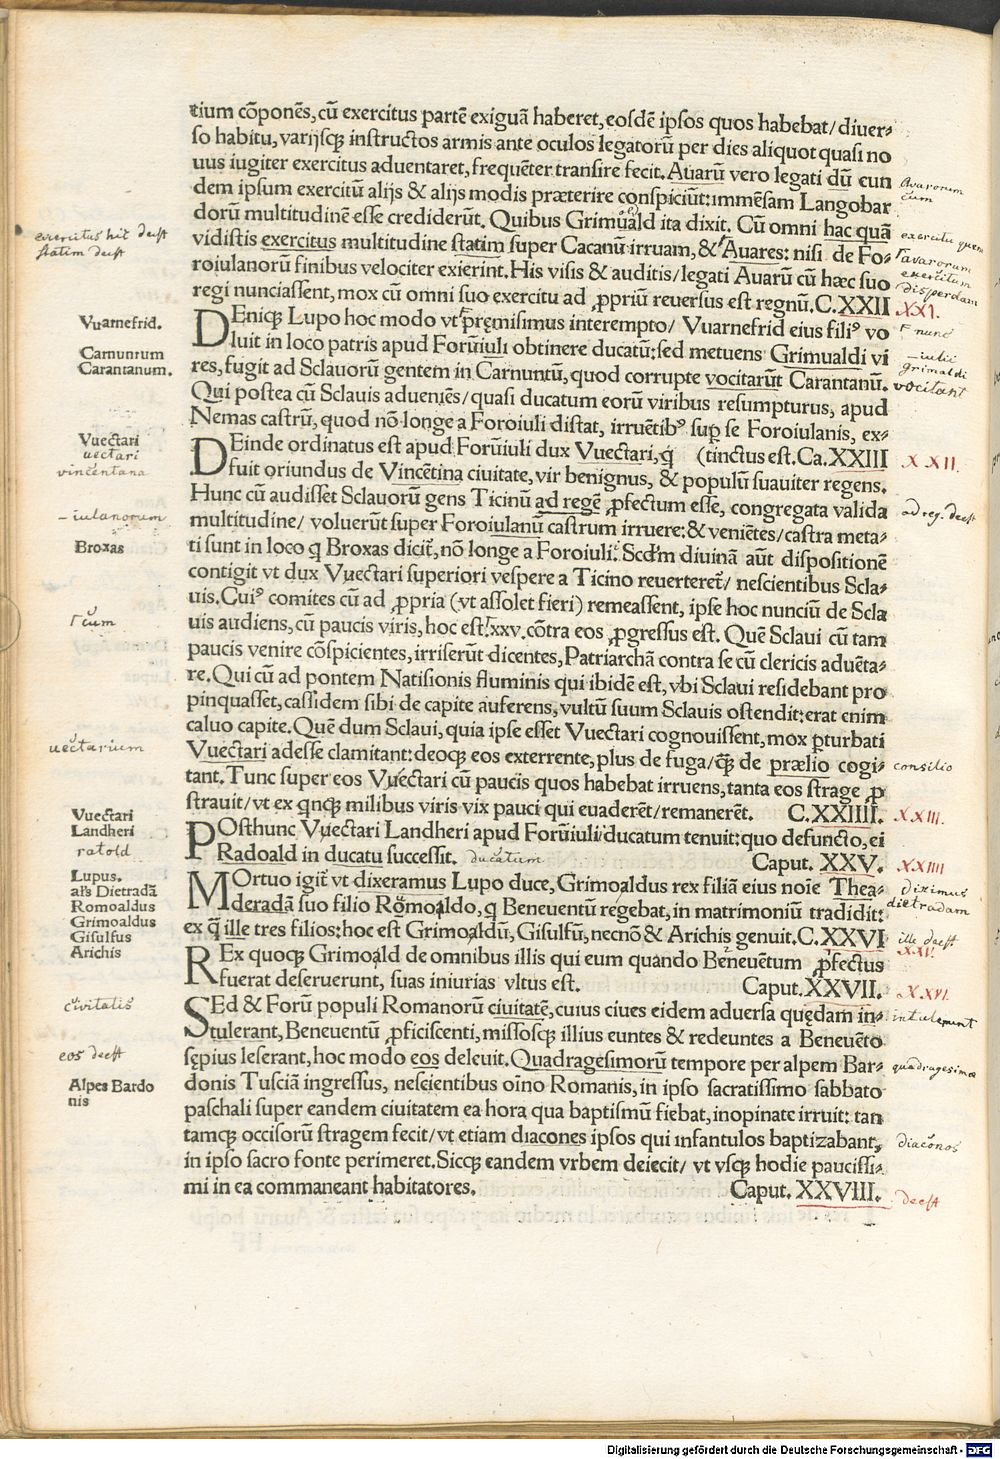 tium cōponēs, cū exercitus partē exiguā haberet, eosdē ipsos quos habebat/ diuer-
so habitu, varijsqꝫ instructos armis ante oculos legatorū per dies aliquot quasi no
uus iugiter exercitus aduentaret, frequēter transire fecit. Auarū vero legati dū eun
dem ipsum exercitū alijs & alijs modis præterire conspiciūt: immēsam Langobar
dorū multitudinē esse crediderūt. Quibus Grimuald ita dixit. Cū omni hac quā
vidistis exercitus multitudine statim super Cacanū irruam, & Auares: nisi de Fo-
roiulanorū finibus velociter exierint. His visis & auditis/ legati Auarū cū hæc suo
regi nunciassent, mox cū omni suo exercitu ad ꝓpriū reuersus est regnū. C. XXII
DEnicqꝫ Lupo hoc modo vt pręmisimus interempto/ Vuarnefrid eius filiꝰ vo
luit in loco patris apud Forūiuli obtinere ducatū: sed metuens Grimualdi vi
res, fugit ad Sclauorū gentem in Carnuntū, quod corrupte vocitarūt Carantanū.
Qui postea cū Sclauis adueniēs/ quasi ducatum eorū viribus resumpturus, apud
Nemas castrū, quod nō longe a Foroiuli distat, irruētibꝰ suꝑ se Foroiulanis, ex-
DEinde ordinatus est apud Forūiuli dux Vuectari, q̄ (tinctus est. Ca. XXIII
fuit oriundus de Vincētina ciuitate, vir benignus, & populū suauiter regens.
Hunc cū audisset Sclauorū gens Ticinū ad regē ꝓfectum esse, congregata valida
multitudine/ voluerūt super Foroiulanū castrum irruere: & veniētes/ castra meta-
ti sunt in loco q̄ Broxas dicit̄, nō longe a Foroiuli. Scd̄m diuinā aūt dispositionē
contigit vt dux Vuectari superiori vespere a Ticino reuerteret̄/ nescientibus Scla-
uis. Cuiꝰ comites cū ad ꝓpria (vt assolet fieri) remeassent, ipse hoc nunciū de Scla
uis audiens, cū paucis viris, hoc est xxv. cōtra eos ꝓgressus est. Quē Sclaui cū tam
paucis venire cōspicientes, irriserūt dicentes, Patriarchā contra se cū clericis aduēta-
re. Qui cū ad pontem Natisionis fluminis qui ibidē est, vbi Sclaui residebant pro
pinquasset, cassidem sibi de capite auferens, vultū suum Sclauis ostendit: erat enim
caluo capite. Quē dum Sclaui, quia ipse esset Vuectari cognouissent, mox ꝑturbati
Vuectari adesse clamitant: deoqꝫ eos exterrente, plus de fuga/ q̄ꝫ de prælio cogi-
tant. Tunc super eos Vuectari cū paucis quos habebat irruens, tanta eos strage ꝓ
strauit/ vt ex qnqꝫ milibus viris vix pauci qui euaderēt/ remanerēt. C. XXIIII.
POsthunc Vuectari Landheri apud Forūiuli ducatum tenuit: quo defuncto, ei
Radoald in ducatu successit. ducatum Caput. XXV.
MOrtuo igit̄ vt dixeramus Lupo duce, Grimoaldus rex filiā eius noīe Thea-
deradā suo filio Romoaldo, q̄ Beneuentū regebat, in matrimoniū tradidit:
ex q̄ ille tres filios: hoc est Grimoaldū, Gisulfū, necnō & Arichis genuit. C. XXVI
REx quoqꝫ Grimoald de omnibus illis qui eum quando Beneuentum ꝓfectus
fuerat deseruerunt, suas iniurias vltus est. Caput. XXVII.
SEd & Forū populi Romanorū ciuitatē, cuius ciues eidem aduersa quędam in-
tulerant, Beneuentū ꝓficiscenti, missosqꝫ illius euntes & redeuntes a Beneuēto
sępius leserant, hoc modo eos deleuit. Quadragesimorū tempore per alpem Bar-
donis Tusciā ingressus, nescientibus oīno Romanis, in ipso sacratissimo sabbato
paschali super eandem ciuitatem ea hora qua baptismū fiebat, inopinate irruit: tan
tamqꝫ occisorū stragem fecit/ vt etiam diacones ipsos qui infantulos baptizabant,
in ipso sacro fonte perimeret. Sicqꝫ eandem vrbem deiecit/ vt vsqꝫ hodie paucissi-
mi in ea commaneant habitatores. Caput. XXVIII.
exercitus hic deest
statim deest
Vuarnefrid.
Carnuntum
Carantanum.
Vuectari
uectari
vincentana
- iulanorum
Broxas
cum
uectarium
Vuectari
Landheri
ratold
Lupus.
al's Dietradā
Romoaldus
Grimoaldus
Gisulfus
Arichis
civitatis
eos deest
Alpes Bardo
nis
Avarorum
cum
exercitu quem
avarorum
exercitum
disperdam
XXI.
nunc
- iulii
grimaldi
vocitant
XXII.
ad reg. deest
consilio
XXIII.
XXIIII
diximus
dietradam
ille deest
XXV.
XXVI.
intulerunt
quadragesimæ
diaconos
deest
Digitalisierung gefördert durch die Deutsche Forschungsgemeinschaft - DFG